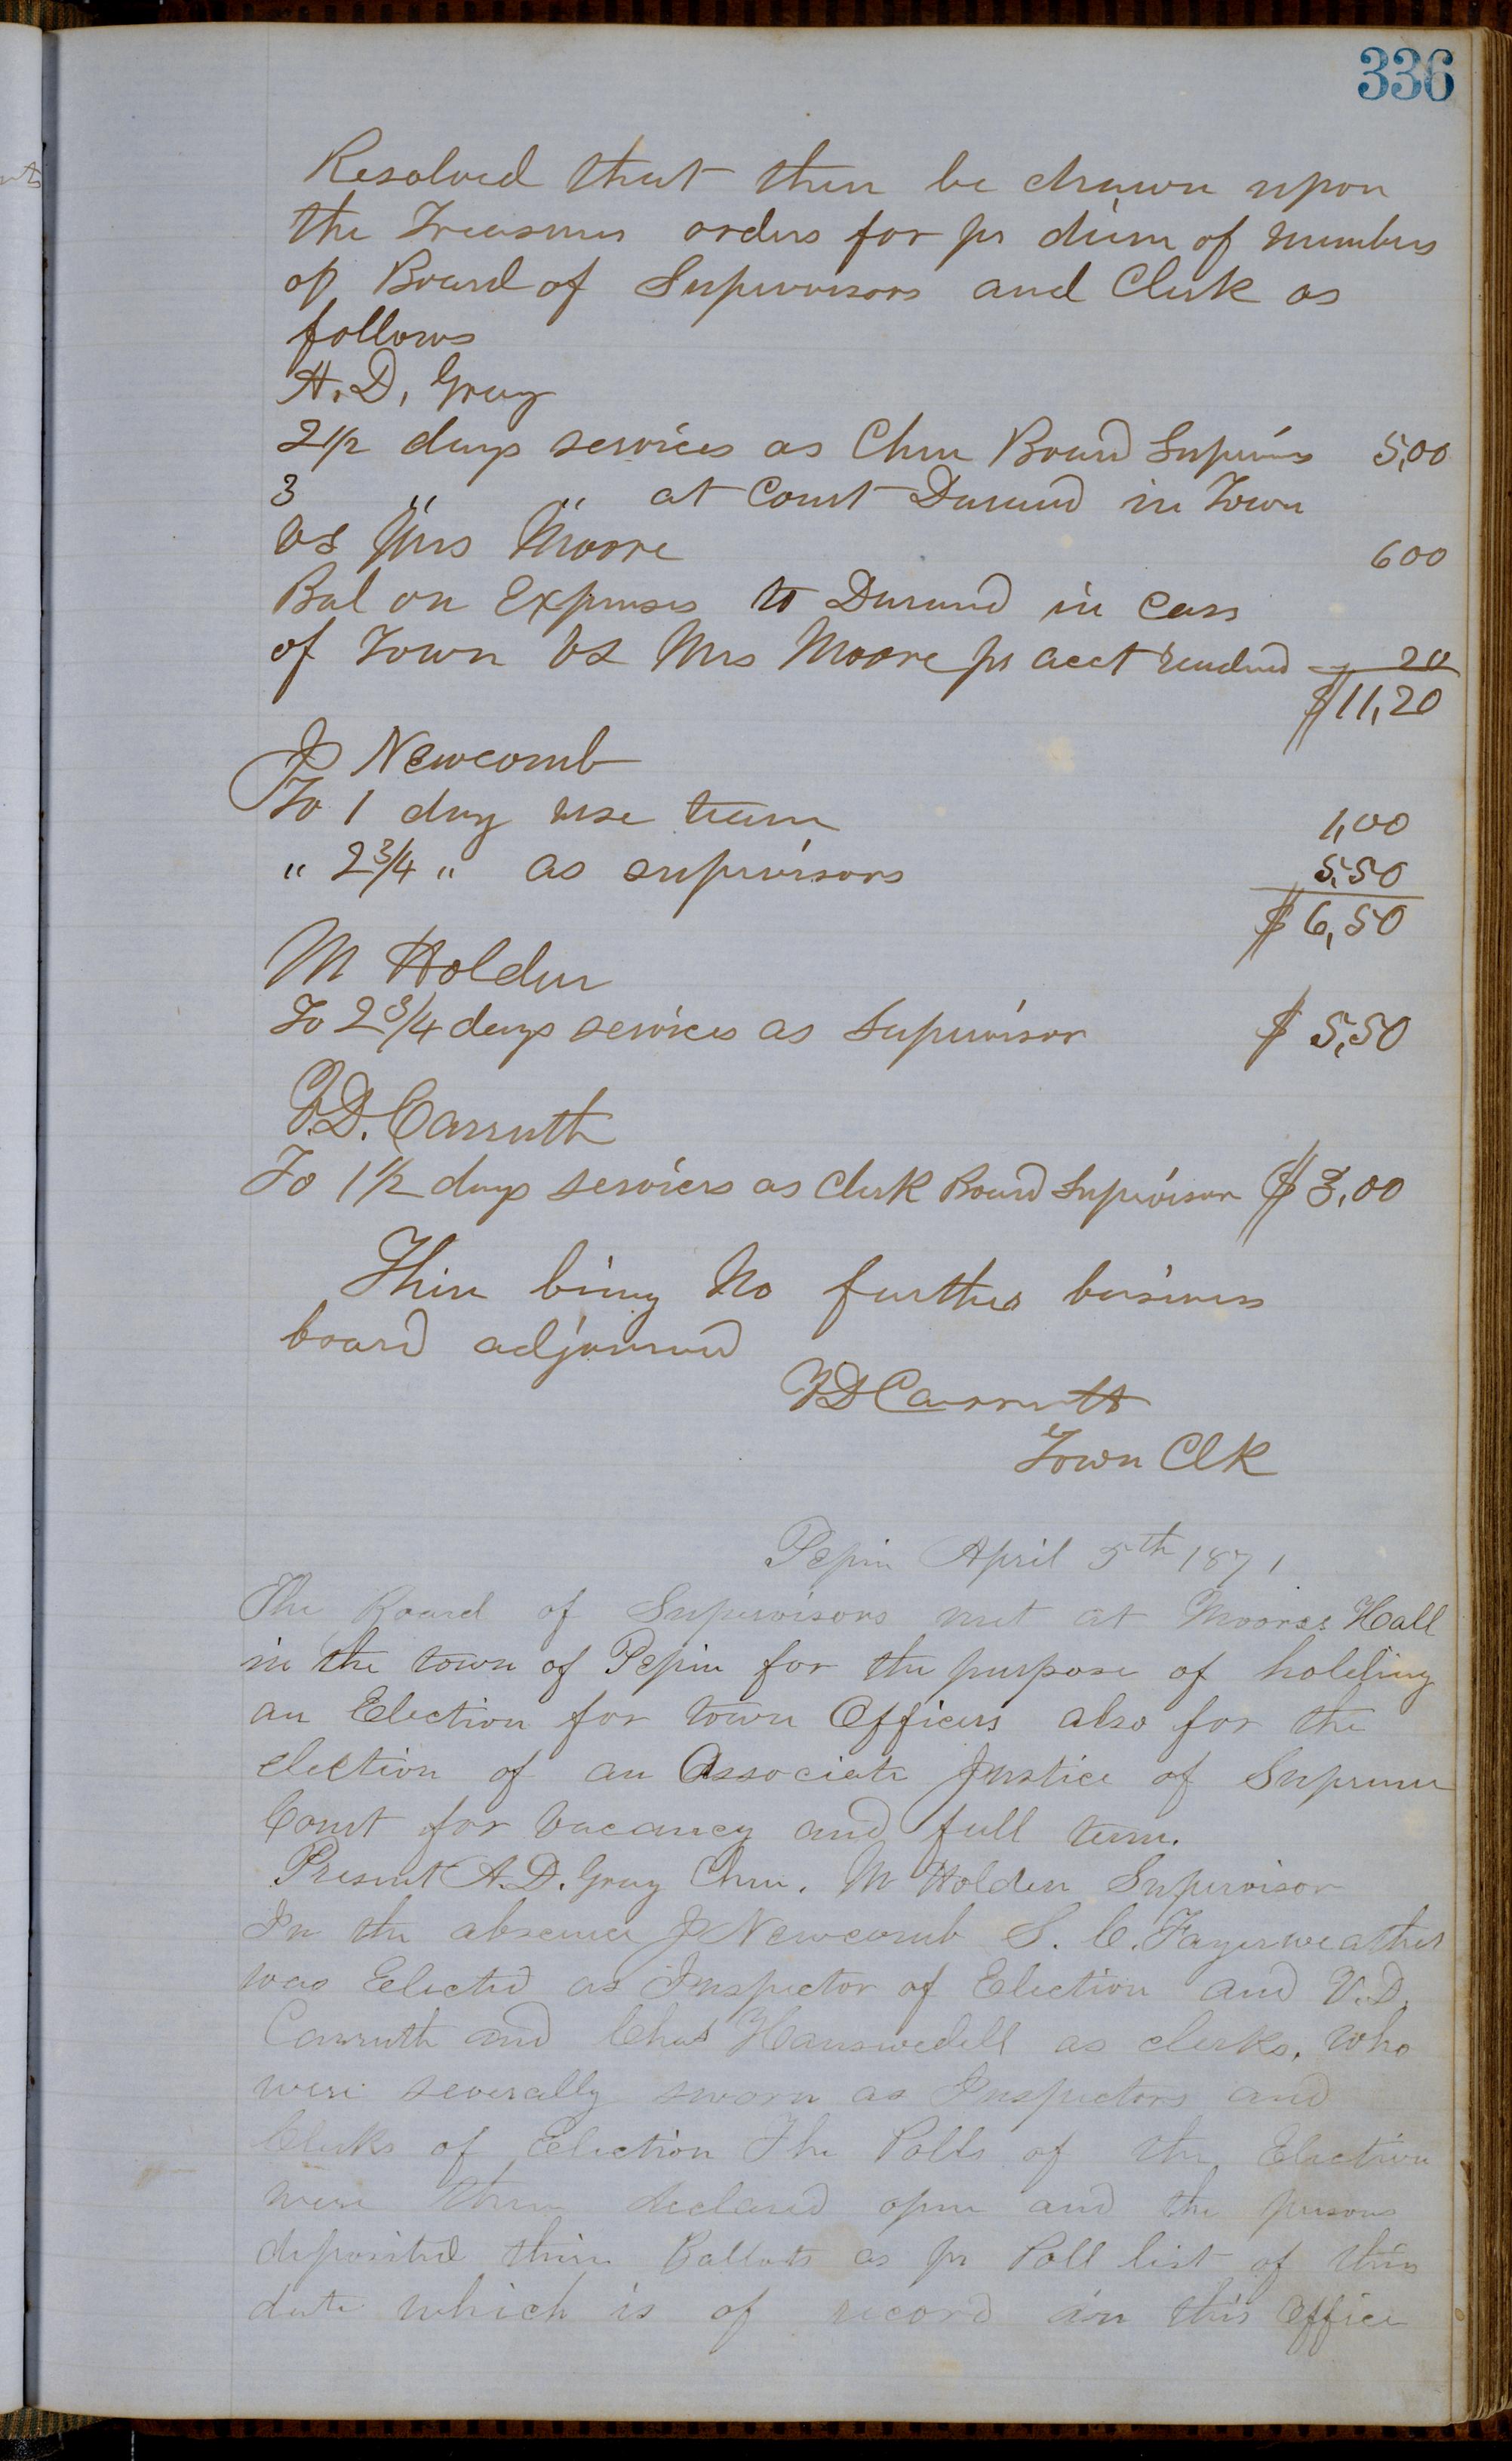 336
Resolved that there be drawn upon
the Treasurer orders for pr diem of members
of Board of Supervisors and Clerk as
follows
A. D, Gray
2 1/2 days services as Chm Board Supervis 5,00
3 " " at Court Durand in Town
vs Mrs Moore 600
Bal on Expenses to Durand in case
of Town vs Mrs Moore pr acct rendered 20
$11,20
J Newcomb
To 1 day use team 1,00
" 2 3/4 " as supervisors 5,50
$ 6,50
M Holden
To 2 3/4 days services as Supervisor $ 5,50
V.D. Carruth
To 1 1/2 days services as Clerk Board Supervisor $ 3,00
There being No further business
board adjourned
V D Carruth
Town Clk
Pepin April 5th 1871
The Board of Supervisors met at Moores Hall
in the town of Pepin for the purpose of holding
an Election for town Officers also for the
election of an Associate Justice of Supreme
Court for vacancy and full term.
Present A.D. Gray Chm. M Holden Supervisor
In the absence J Newcomb S. C. Fayerweather
was Elected as Inspector of Election and V.D.
Carruth and Chas Hanswedell as clerks. Who
were severally sworn as Inspectors and
Clerks of Election The Polls of the Election
were then declared open and the persons
deposited their Ballots as pr Poll list of this
date which is of record in this Office